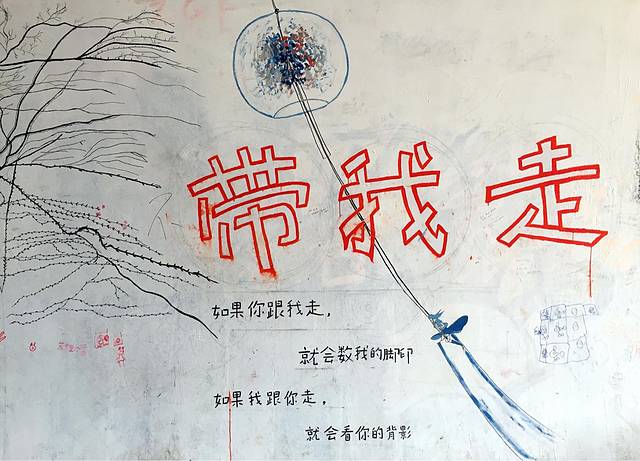 带我走
如果你跟我走，
就会数我的脚印
如果我跟你走，
就会看你的背影